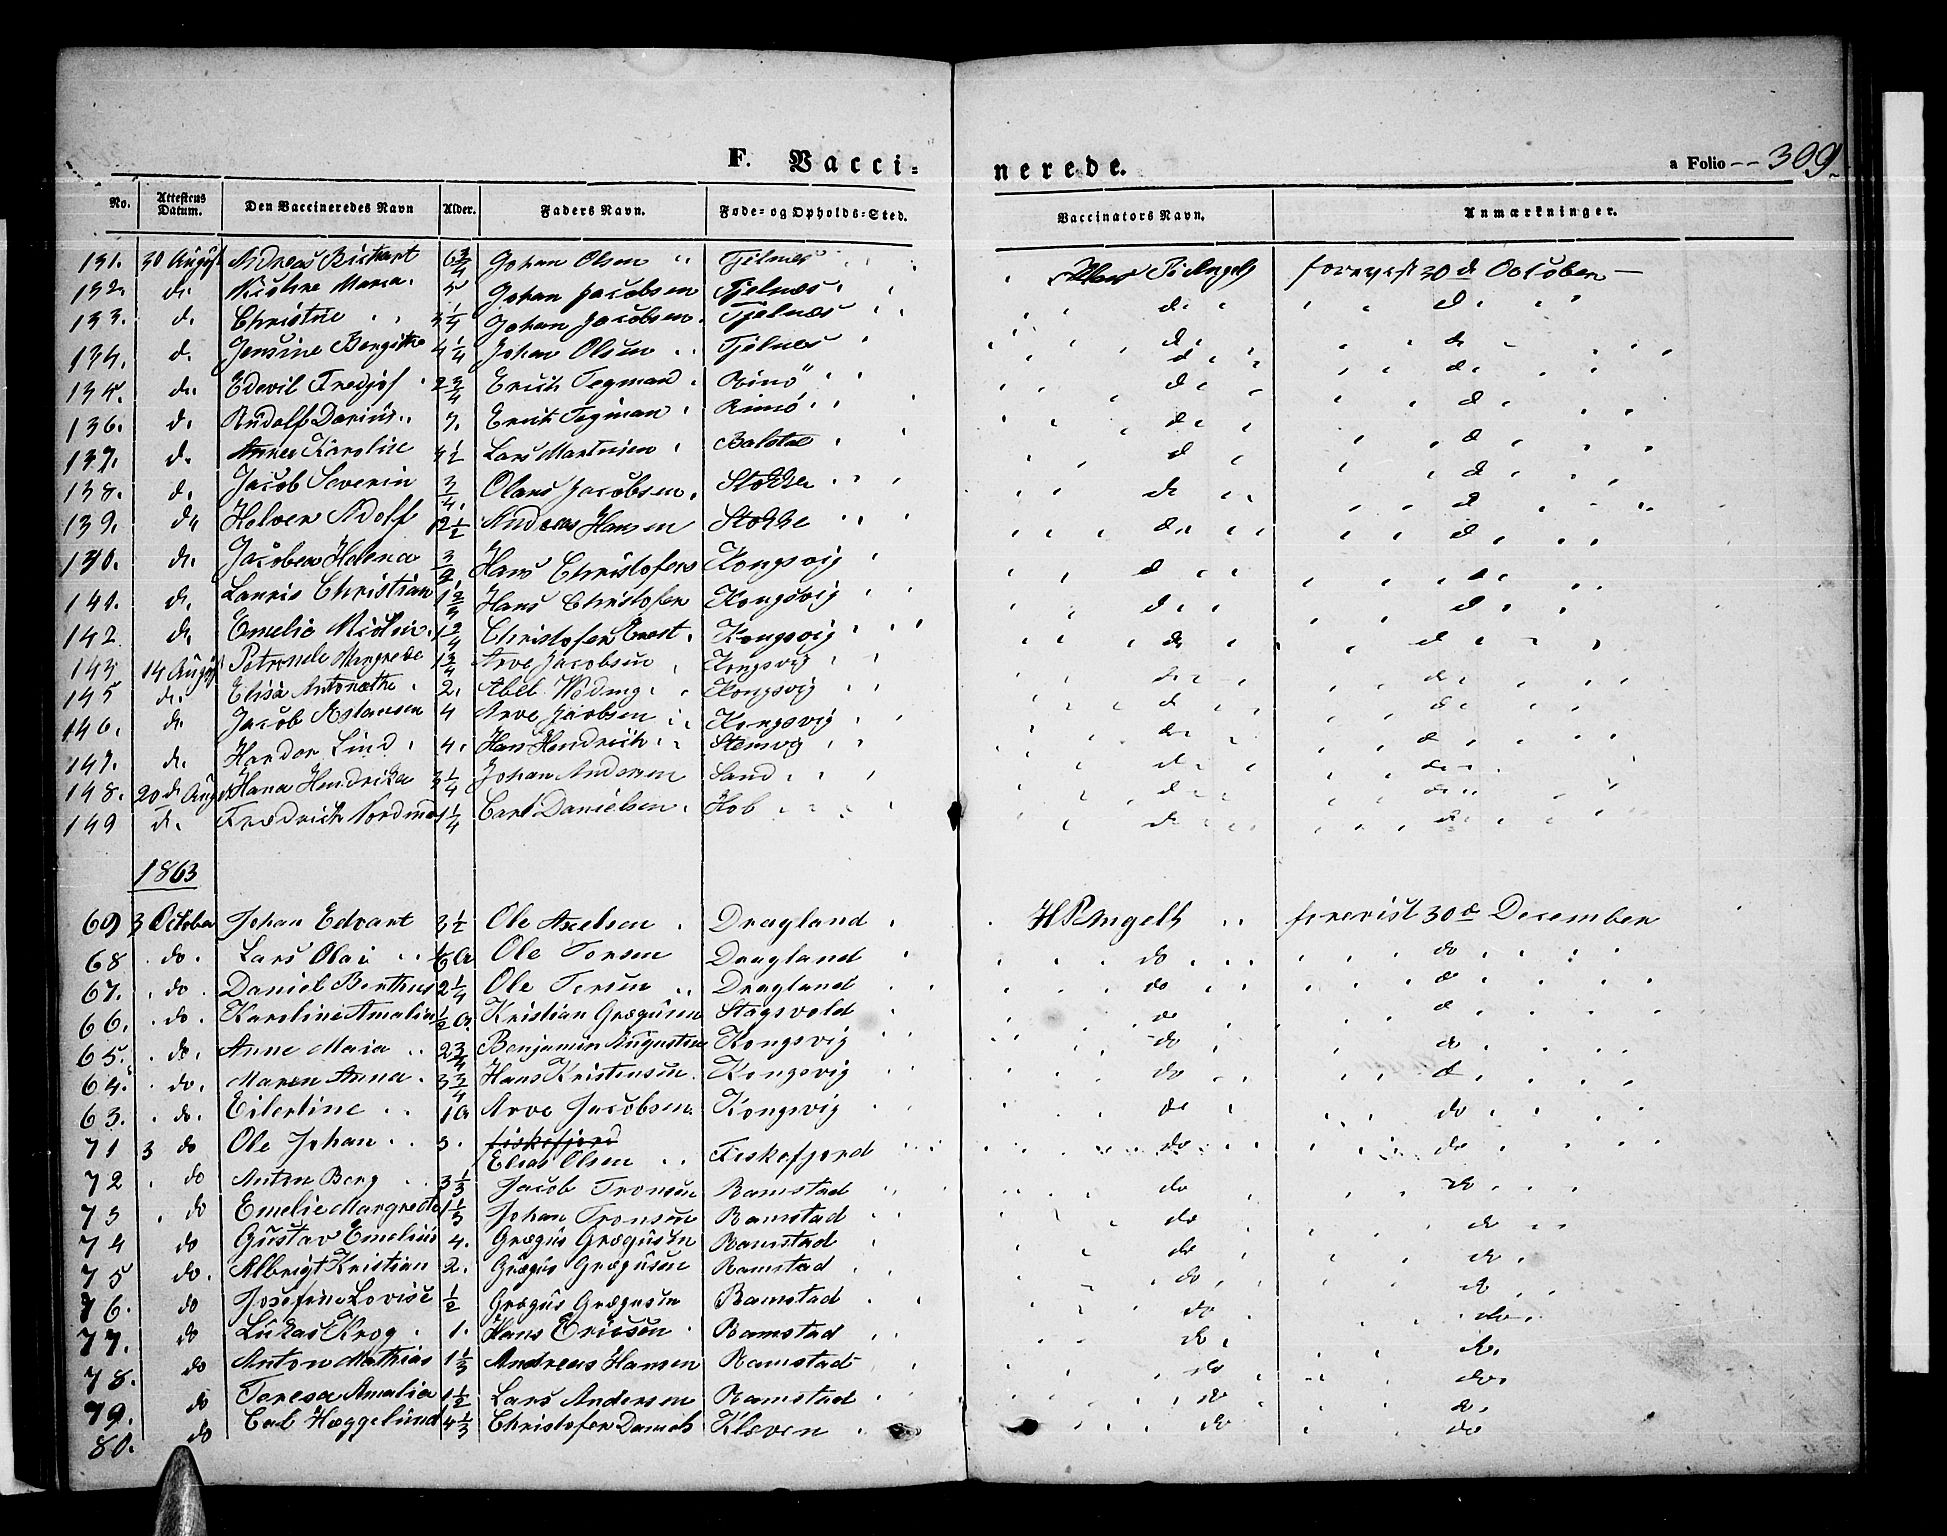 F. Vacci- nerede. a Folio -- 309.
No. Attestens Datum. Den Vaccineredes Navn Alder. Faders Navn. Føde- og Opholds-Sted. Vaccinators Navn. Anmærkninger.
131. 30 August Andreas Bichart 6 3/4 Johan Olsen Tjelnes forevist 30 d October
132. d. Nicoline Maria 5 Johan Jacobsen Tjelnæs d. d.
133. d. Christne 3 1/4 Johan Jacobsen Tjelnæs d. d
134. d. Jensine Bergithe 4 1/4 Johan Olsen Tjelnes d d
135. d. Edevil Fredjof 2 3/4 Erich Tegman Rinø d d
136. d. Rudolf Darius 7. Erich Tegman Rinø d. d
137. d. Annea Karoline 3 1/2 Lars Martinsen Balstad d d
138. d. Jacob Severin 3/4. Olaus Jacobsen Stokke d. d
139. d. Halver Adolf 2 1/2 Andreas Hansen Stokke d. d
130. d. Jacobea Halena Hans Christofers Kongsvig d d
141. d. Lauris Christian Hans Christofer Kongsvig d. d
142 d. Emelie Nicoline Christofer Ernst Kongsvig d d
143 14 August Petronele Margrede 1 3/4 Arve Jacobsen Kongsvig d. d.
145 d. Elisa Antonæthe 2. Abel Kongsvig d d.
146. d. Jacob 4 Arve Jacobsen Kongsvig d. d
147. d. Hardor Lind 4. Hans Hendrich Stensvg d. d.
148. 20 d. Aug Hana Hendrika 3 1/4 Johan Andersen Sand d. d.
149 d. Fredrich Nordmo 1 1/4 Carl Danielsen Hol d. d.
1863
69 3 October Johan Edvart 3 1/2 Ole Axelsen Dragland H P Angell forevist 30 d December
68 do. Lars Olai Ole Torsen Dragland do do
67. do. Daniel Bertheus 2 1/4 Ole Torsen Dragland do d
66. do. Karoline Amalia 1/2 a. Kristian Græгusen Stagsvold do d
65. do. Anne Maia 2 3/4 Benjamin Augustin Kongsvig do do
64. do. Maren Anna 3 3/4 Hans Kristensen Kongsvig do d
63. do. Eilertine 1 a Arve Jacobsen Kongsvig do do
71 3 do Ole Johan 5. fiskefjord Elias Olsen Fiskefjord do do
72 do Anton Berg 3 1/3 Jacob Tronsen Ramstad do do
73 do Emelie Margrede 1 1/3 Johan Tronsen Ramstad do do
74 do Gustav Emelius 4. Grægus Grægusen Ramstad do do
75 do. Albrigt Kristian 2. Grægus Grægusen Ramstad do do
76. do Josefine Lovise 1/2 Grægus Grægusen Ramstad do do.
77. do Lukas Krog 1. Hans Ericsen Ramstad do do.
78. do Anton Mathias 1 1/3 Andreas Hansen Ramstad do do
79. do Teresa Amalia 1 1/2 Lars Andersen Ramstad do do.
80. do Carl Hæggelund 4 1/3 Christofer Daniels Kleven do do